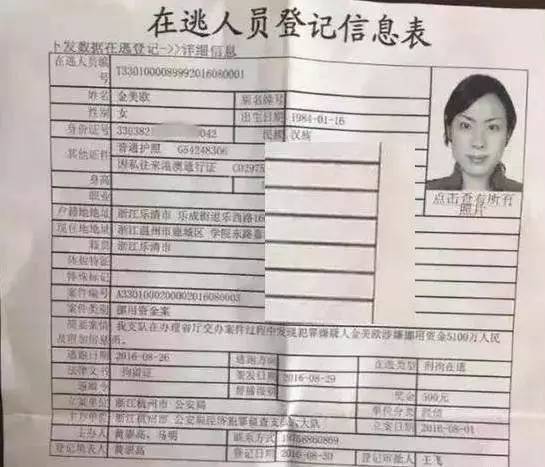 在逃人员登记信息表
卜发数据在逃登记->>详细信息
在逃人员编号 T3301000089992016080001
姓名 金美欧 别名绰号
性别 女 出生日期 1984-01-16
身份证号 330382 042 民族 汉族
其他证件 普通护照 G54248306
因私往来港澳通行证 C02975
身高
职业
户籍地地址 浙江乐清市 乐成街道乐西路16
现住地地址 浙江温州市鹿城区 学院东路嘉
籍贯 浙江乐清市
体表特征
特殊标记
点击查看所有照片
案件编号 A3301000200002016080003
案件类别 挪用资金案
简要案情 我支队在办理省厅交办案件过程中发现犯罪嫌疑人金美欧涉嫌挪用资金5100万人民
逃跑日期 2016-08-26 逃跑方向 在逃类型 刑拘在逃
法律文书 拘留证 签发日期 2016-08-29
通缉令 督捕级别 奖金 500元
立案单位 浙江杭州市 公安局 单位分类 经侦
主办单位 浙江杭州市 公安局经济犯罪侦查支队 大队 立案日期 2016-08-01
主办人 黄崇高、马明 联系方式 19758860869
登记填表人 黄崇高 登记日期 2016-08-30 登记审批人 王飞